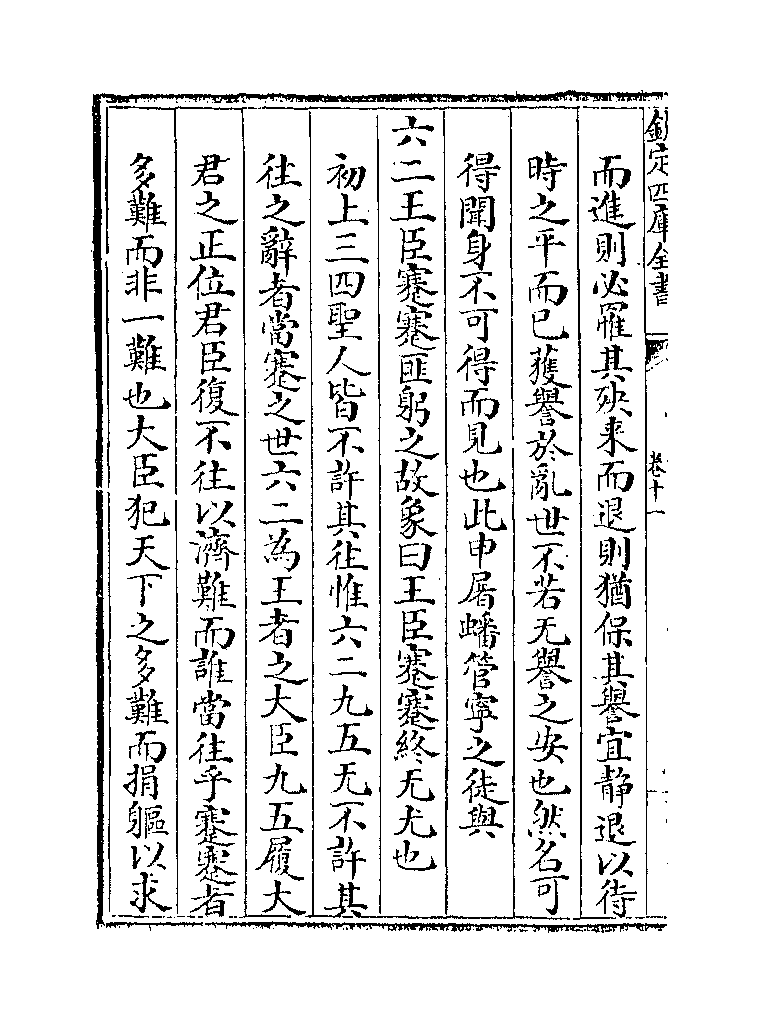 欽定四庫全書
卷十一
而進則必罹其殃来而退則猶保其譽宜静退以待
時之平而已獲譽於亂世不若无譽之安也然名可
得聞身不可得而見也此申屠蟠管寧之徒與
六二王臣蹇蹇匪躬之故象曰王臣蹇蹇終无尤也
初上三四聖人皆不許其往惟六二九五无不許其
往之辭者當蹇之世六二為王者之大臣九五履大
君之正位君臣復不往以濟難而誰當往乎蹇蹇者
多難而非一難也大臣犯天下之多難而捐軀以求